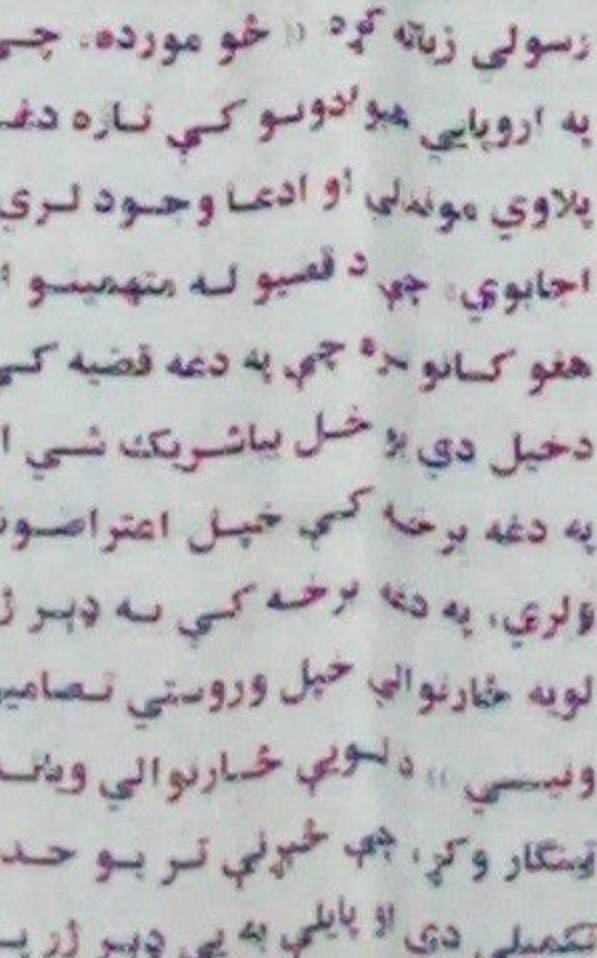 رسولي زياته کړه (( خو مورده، چې
په اروپايي هيوادونو کې تازه دغه
پلاوي موندلي او ادعا وجود لري
اچابوي، چې د قضيو له متهمينو
هغو کسانو سره چې په دغه قضيه کې
دخيل دي يو ځل بياشريک شي ا
په دغه برخه کې خپل اعتراضونه
ولري، په دغه برخه کې به ډېر ژ
لويه څارنوالي خپل وروستي تصاميم
ونيسي )) د لويې څارنوالي وياند
ټينګار وکړ، چې څېړنې تر يو حده
تکميلي دي او پايلې به يې ډېر ژر په